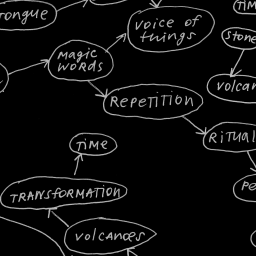 TONGUE
VOICE OF
THINGS
TIM
STONE
MAGIC
WORDS
VOLCAN
REPETITION
RITUAL
TIME
TRANSFORMATION
PE
VOLCANOES